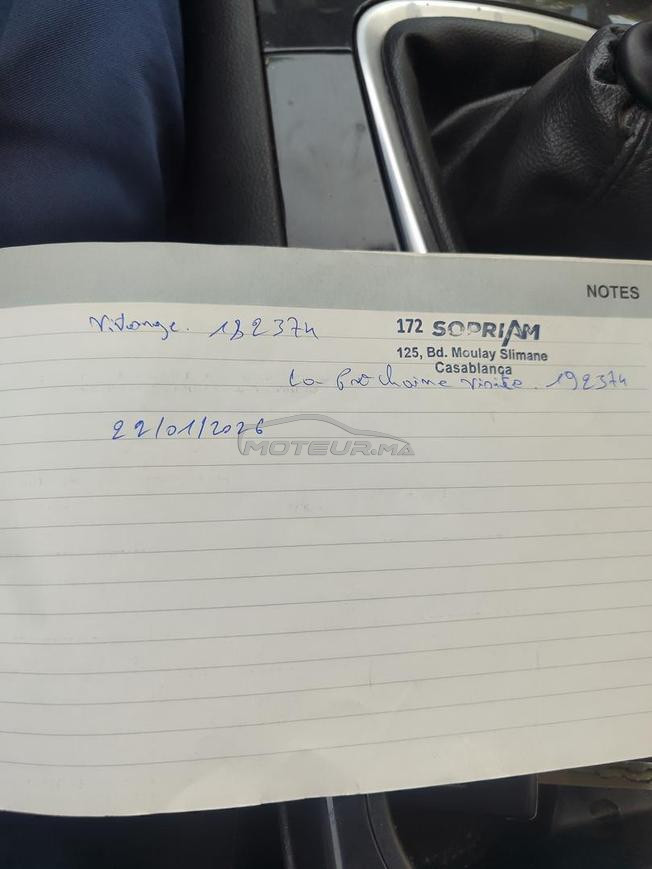 NOTES
Vidange. 182374
172 SOPRIAM
125, Bd. Moulay Slimane
Casablanca
La prochaine visite. 192374
22/01/2026
MOTEUR.MA